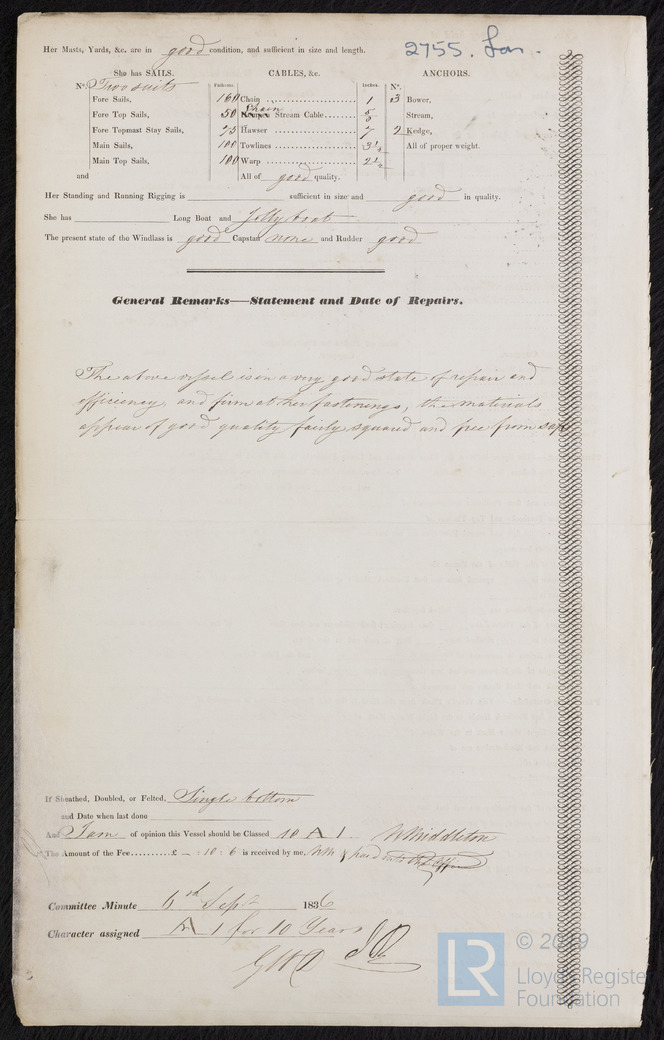 Her Masts, Yards, &c. are in good condition, and sufficient in size and length.
2755. Lon.
She has SAILS. CABLES, &c. ANCHORS.
Nº. Two suits Fathoms. Inches. Nº.
Fore Sails, 160 Chain 1 3 Bower,
Fore Top Sails, 50 Chain Stream Cable Stream,
Fore Topmast Stay Sails, 75 Hawser 7 2 Kedge,
Main Sails, 100 Towlines 3½ All of proper weight.
Main Top Sails, 100 Warp 2½
and All of good quality.
Her Standing and Running Rigging is sufficient in size and good in quality.
She has Long Boat and Jolly boat
The present state of the Windlass is good Capstan none and Rudder good
General Remarks—Statement and Date of Repairs.
The above vessel is in a very good state of repair and
efficiency, and firm at her fastenings, the materials
appear of good quality fairly squared and free from sap
If Sheathed, Doubled, or Felted, Single bottom
and Date when last done
And I am of opinion this Vessel should be Classed 10 A 1. W Middleton
The Amount of the Fee..........£ – : 10 : 6 is received by me, WM
Committee Minute 6th Sept 1836
Character assigned A 1 for 10 Years
© 2019
LR
Lloyd's Register
Foundation